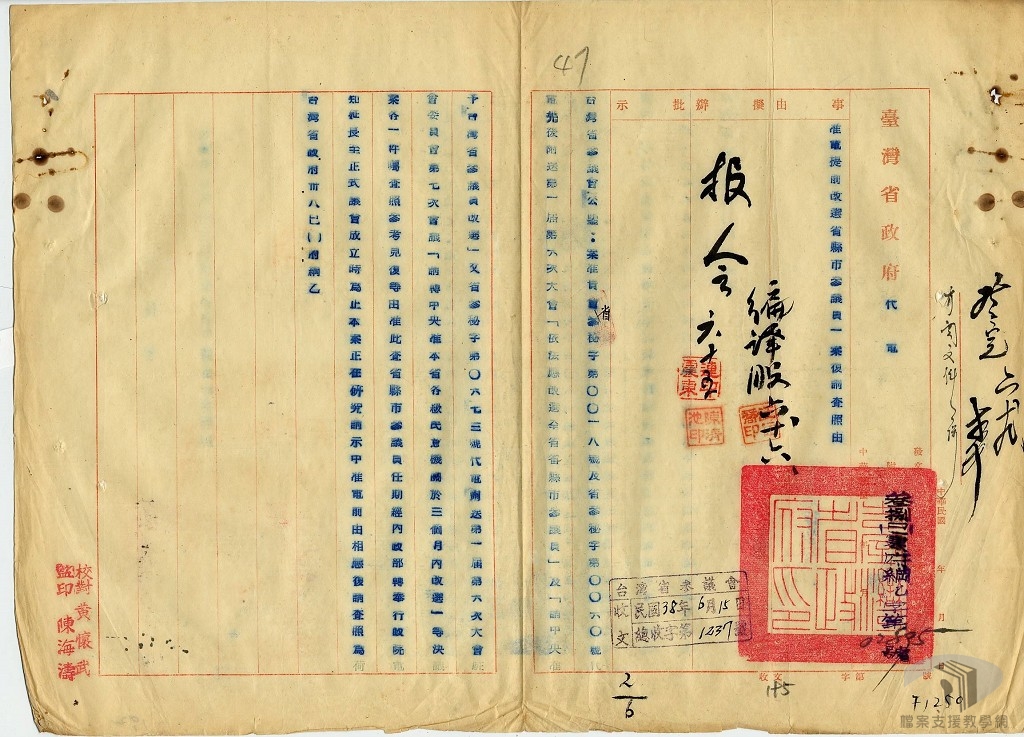 47
臺灣省政府代電
事由
擬辦
批示
准電提前改選省縣市參議員一案復請查照由
報
令
六十五
編譯股
六十六
台灣省參議會公鑒：案准貴會參秘字第〇〇一八號及省參秘字第〇〇六〇號代
電先後附送第一屆第六次大會「依法應改選全省各縣市參議員」及「請中央准
予台灣省參議員改選」又省參秘字第〇六七三號代電附送第一屆第六次大會
會委員會第七次會議「請轉中央准本省各級民意機構於三個月內改選」等決議
案各一件囑查照參考見復等由准此查省縣市參議員任期經內政部轉奉行政院電
知延長至正式議會成立時為止本案正在研究請示中准電前由相應復請查照為荷
台灣省政府
省
台灣省參議會
收文
民國38年6月15日
總收字第1237號
中華民國
年
月
日
字第
號
收文
2/6
校對 黃懷武
監印 陳海濤
檔案支援教學網